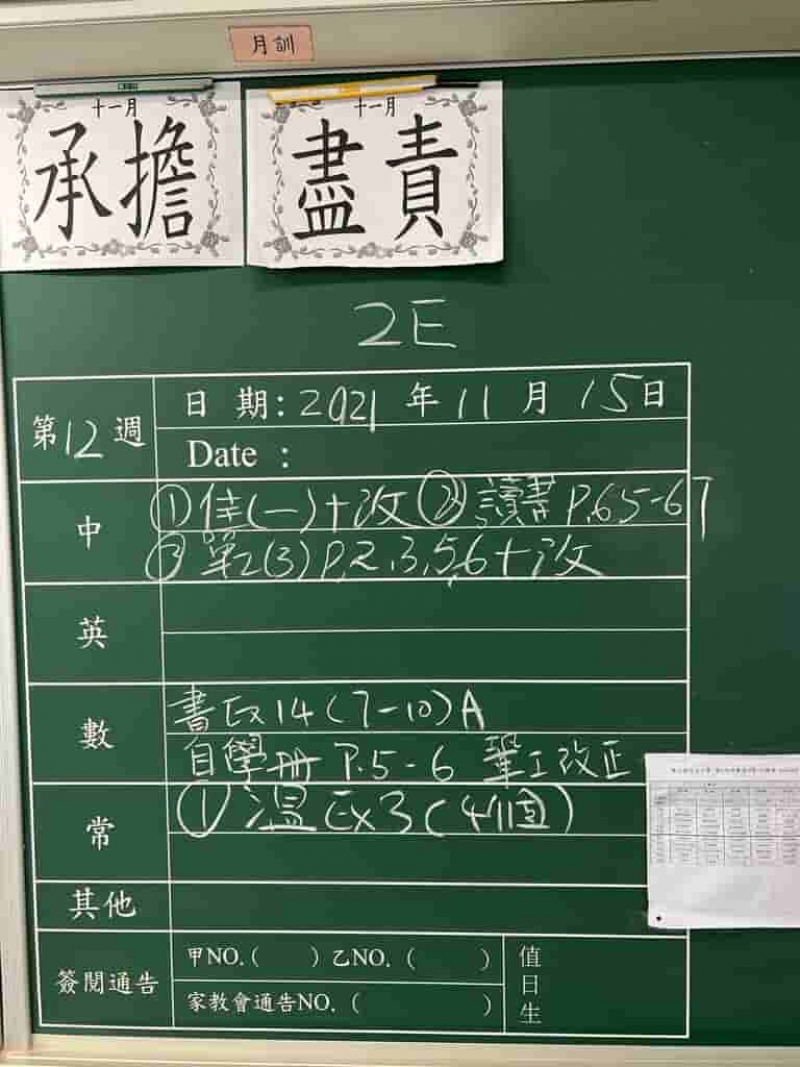 月訓
十一月
承擔
十一月
盡責
2E
第12週
日期:2021年11月15日
Date :
中
①佳(一)+改②讀書P.65-67
③單2(3)P.2.3.5.6+改
英
數
書Ex14(7-10)A
自學冊 P.5-6 單工改正
常
①溫Ex3(4個)
其他
簽閱通告
甲NO.( )乙NO.( )
家教會通告NO.( )
值日生